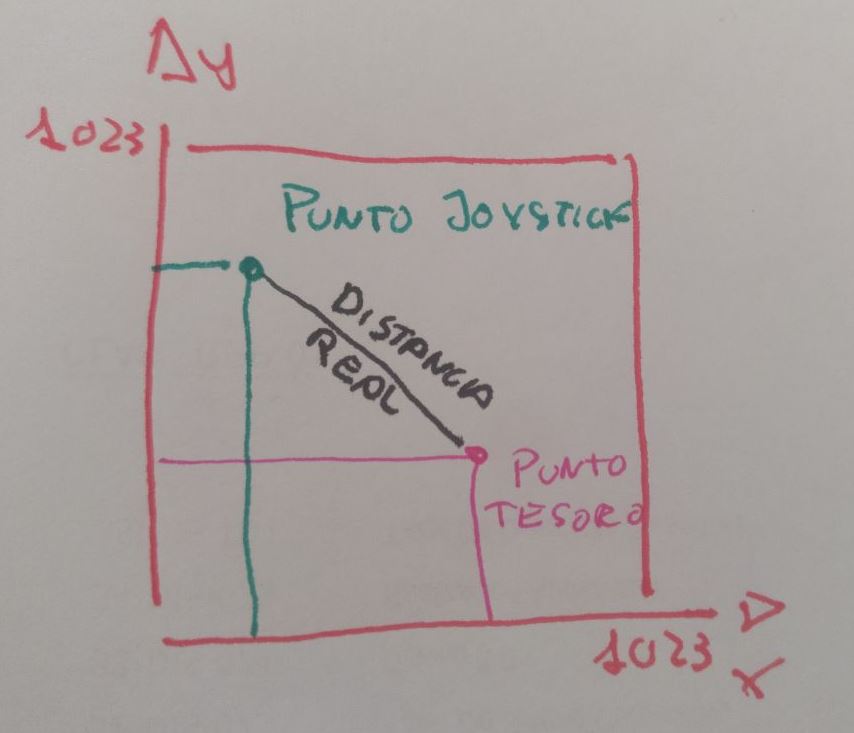 y
1023
PUNTO JOYSTICK
DISTANCIA
REAL
PUNTO
TESORO
1023
X